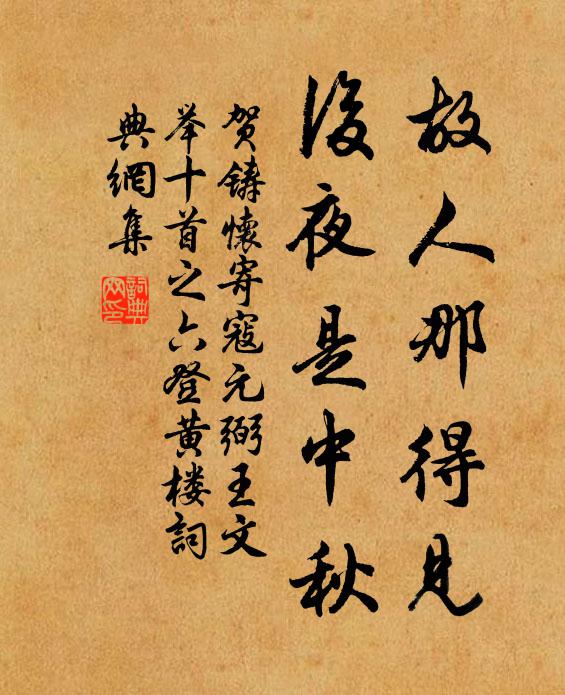 故人那得見
後夜是中秋
賀鑄懷寄寇元弼王文
举十首之六登黄楼詞
典網集
詞典網印